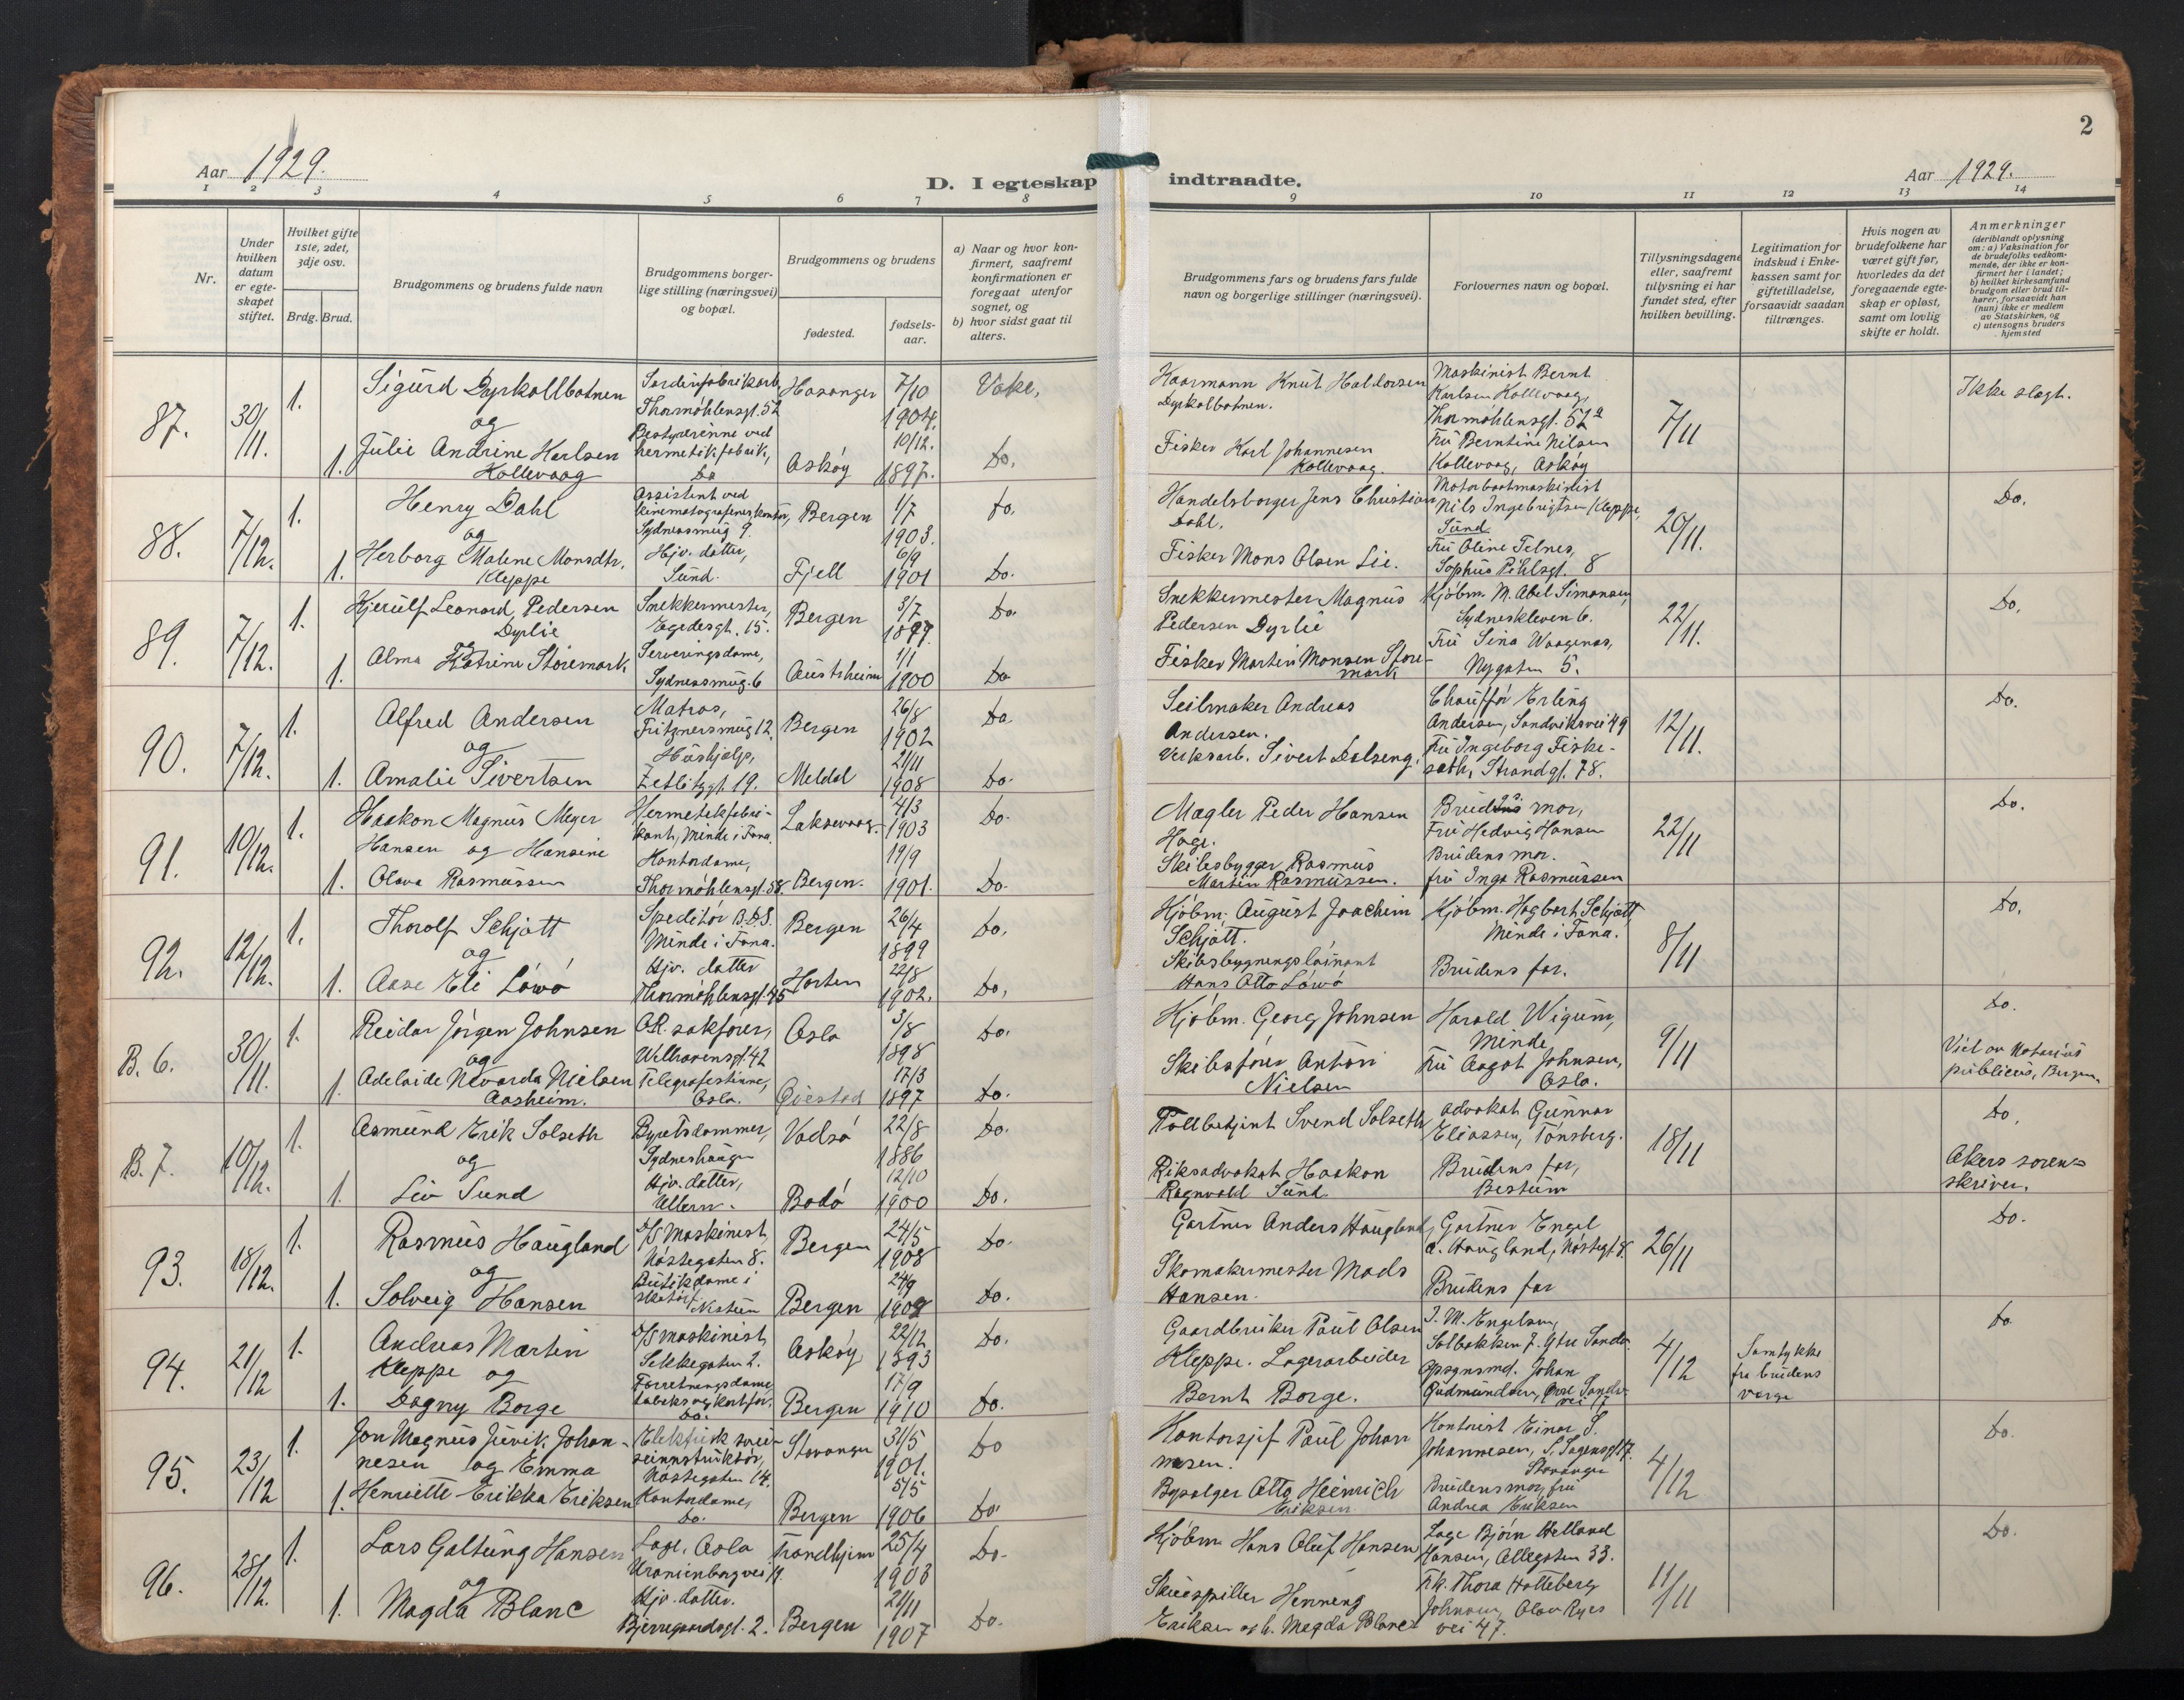 Aar 1929.
D. I egteskap indtraadte.
Aar 1929.
2
1 2 3 4 5 6 7 8 9 10 11 12 13 14
Nr.
Under hvilken datum er egteskapet stiftet.
Hvilket gifte 1ste, 2det, 3dje osv.
Brdg. Brud.
Brudgommens og brudens fulde navn
Brudgommens borgerlige stilling (næringsvei) og bopæl.
Brudgommens og brudens
fødested.
fødselsaar.
a) Naar og hvor konfirmert, saafremt konfirmationen er foregaat utenfor sognet, og
b) hvor sidst gaat til alters.
Brudgommens fars og brudens fars fulde navn og borgerlige stillinger (næringsvei).
Forlovernes navn og bopæl.
Tillysningsdagene eller, saafremt tillysning ei har fundet sted, efter hvilken bevilling.
Legitimation for indskud i Enkekassen samt for giftetilladelse, forsaavidt saadan tiltrænges.
Hvis nogen av brudefolkene har været gift før, hvorledes da det foregaaende egteskap er opløst, samt om lovlig skifte er holdt.
Anmerkninger (deriblandt oplysning om: a) Vaksination for de brudefolks vedkommende, der ikke er konfirmert her i landet; b) hvilket kirkesamfund brudgom eller brud tilhører, forsaavidt han (hun) ikke er medlem av Statskirken, og c) utensogns bruders hjemsted
87. 30/11. 1. Sigurd Dyrkollbotnen Sardinfabrikarb. Thormøhlensgt. 52 Hosanger 7/10 1904. Vake. Haarmann Knut Haldorsen Dyrkolbotnen. Maskinist Bernt Karlsen Kollevaag, Thormøhlensgt. 52a 7/11 Ikke slegt.
og
1. Julie Andrine Karlsen Kollevaag Bestyrerinne ved hermetikfabrik, Do Askøy 10/12. 1897. Do. Fisker Karl Johannesen Kollevaag. Fru Berntine Nilsen Kollevaag, Askøy
88. 7/12. 1. Henry Dahl Assistent ved kinematografenes kontor, Sydnessmug 9. Bergen 1/7 1903. Do. Handelsborger Jens Christian Dahl. Motorbaatmaskinist Nils Ingebrigtsen Kleppe, Sund 20/11. Do.
og
1. Herborg Malene Monsdtr. Kleppe Hjv. datter, Sund. Fjell 6/9 1901 Do. Fisker Mons Olsen Lie. Fru Oline Telnes, Sophus Pihlsgt. 8
89. 7/12. 1. Kjerulf Leonard Pedersen Dyrlie Snekkermester, Egedesgt. 15. Bergen 3/7 1899. Do. Snekkermester Magnus Pedersen Dyrlie Kjøbm. M. Abel Simonsen, Sydneskleven 6. 22/11. Do.
og
1. Alma Katrine Storemark Serveringsdame, Sydnessmug. 6 Austrheim 1/1 1900 Do Fisker Martin Monsen Storemark Fru Sina Waagenes, Nygaten 5.
90. 7/12. 1. Alfred Andersen Matros, Fritznersmug 12. Bergen 26/8 1902 Do. Seilmaker Andreas Andersen. Chauffør Erling Andersen, Sandviksvei 49 12/11. Do.
og
1. Amalie Sivertsen Hushjelp, Zetlitzgt. 19. Meldal 21/11 1908 Do. Verksarb. Sivert Dalseng. Fru Ingeborg Fiskeseth, Strandgt. 78.
91. 10/12. 1. Haakon Magnus Meyer Hansen og Hansine Hermetikfabrikant, Minde i Fana. Laksevaag. 4/3 1903 Do. Mægler Peder Hansen Hage. Brudgs mor, Fru Hedvig Hansen 22/11 Do.
1. Olava Rasmussen Kontordame, Thormøhlensgt. 58. Bergen. 19/9 1901. Do. Skibsbygger Rasmus Martin Rasmussen. Brudens mor. fru Inga Rasmussen
92. 12/12. 1. Thorolf Schjøtt Speditør B.D.S. Minde i Fana. Bergen 26/4 1899 Do. Kjøbm. August Joachim Schjøtt. Kjøbm. Hagbart Schjøtt, Minde i Fana. 8/11 Do.
og
1. Aase Eli Løwø Hjv. datter Thormøhlensgt. 45 Horten 22/8 1902. Do. Skibsbygningsløinant Hans Otto Løwø Brudens far.
B. 6. 30/11. 1. Reidar Jørgen Johnsen O.R. sakfører, Welhavensgt. 42 Oslo 3/8 1898 Do. Kjøbm. Georg Johnsen Harald Wigum, Minde 9/11 Do.
og
1. Adelaide Nevarda Nielsen Aasheim. Telegrafistinne, Oslo. Øiestad 17/3 1897 Do. Skibsfører Anton Nielsen Fru Aagot Johnsen, Oslo. Viet av Notarius publicus, Bergen.
B. 7. 10/12. 1. Asmund Erik Solseth Byretsdommer, Sydneshaugen Vadsø 22/8 1886 Do. Tollbetjent Svend Solseth Advokat Gunnar Eliassen, Tønsberg. 18/11 Do.
og
1. Liv Sund Hjv. datter, Ullern. Bodø 12/10 1900 Do. Riksadvokat Haakon Ragnvald Sund. Brudens far, Bestum Akers sorenskriver.
93. 18/12. 1. Rasmus Haugland D/S Maskinist, Nøstegaten 8. Bergen 24/5 1908 Do. Gartner Anders Haugland, Gartner Engel A. Haugland, Nøstegt. 8. 26/11 Do.
og
1. Solveig Hansen Butikdame i skotøif. Nistuen Bergen 24/9 1908 Do. Skomakermester Mads Hansen. Brudens far
94. 21/12 1. Andreas Martin Kleppe og D/S Maskinist, Sekkegaten 2. Askøy 22/12 1893 Do. Gaardbruker Paul Olsen Kleppe. J. M. Engelsen, Solbakken 7. Ytre Sandv. 4/12 Samtykke fra brudens verge Do
1. Dagny Borge Forretningsdame Do. Bergen 17/9 1910 Do. Lagerarbeider Bernt Borge. Opsynsmd. Johan Gudmundsen, Øvre Sandv. vei 17
95. 23/12 1. Jon Magnus Juvik Johannesen og Emma Elektrisk sveiseinnstruktør, Nøstegaten 14. Stavanger 31/5 1901. Do Kontorsjef Paul Johannesen. Kontorist Einar S. Johannesen, S. Sagensgt 17. Stavanger 4/12 Do.
1. Henriette Erikka Eriksen Kontordame, Do. Bergen 5/5 1906 Do. Byselger Otto Heinrich Eriksen Brudens mor, fru Andrea Eriksen
96. 28/12. 1. Lars Galtung Hansen Læge, Oslo Uranienborgvei 11. Trondhjem 25/4 1903 Do. Kjøbm Hans Oluf Hansen Læge Bjørn Helland Hansen, Allegaten 33. 11/11 Do.
og
1. Magda Blanc Hjv. datter. Bjerregaardsgt. 2. Bergen 21/11 1907 Do. Skuespiller Henning Eriksen og h. Magda Blanc Frk. Thora Holteberg Johnsen, Olav Ryes vei 47.